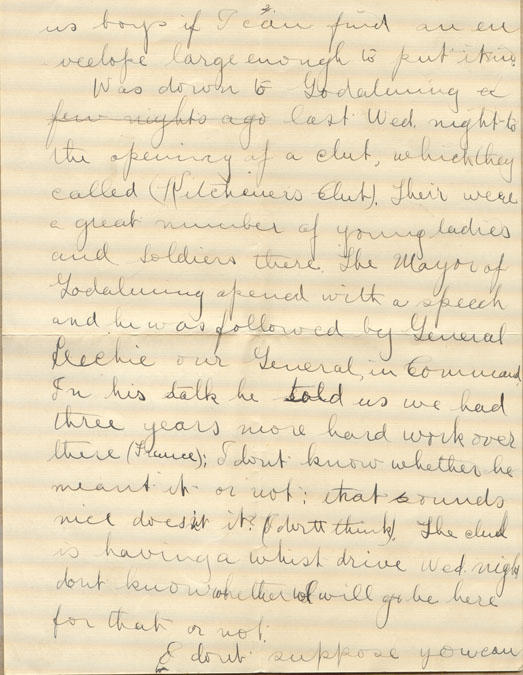 us boys if I can find an en
velope large enough to put it in.
Was down to Godalming a
few nights ago last Wed. night to
the opening of a club, which they
called (Kitcheners Club). Their were
a great number of young ladies
and soldiers there. The Mayor of
Godalming opened with a speech
and he was followed by General
our General, in Command.
In his talk he told us we had
three years more hard work over
there (France); I dont know whether he
meant it or not; that sounds
nice doesnt it? (I dont think). The club
is having a whist drive Wed. night
dont know whether will be here
for that or not.
I dont suppose you can